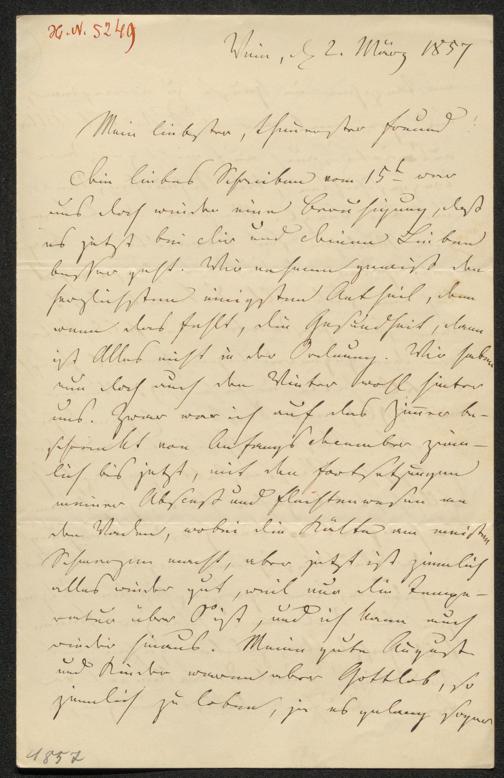 H. N. 5249
Wien, d. 2. März 1857
Mein liebster, theuerster Freund!
Dein liebes Schreiben vom 15t war
uns doch wieder eine Beruhigung, daß
es jetzt bei dir und deinen Lieben
besser geht. Wir nehmen gewiß den
herzlichsten innigsten Antheil, denn
wenn das fehlt, die Gesundheit, dann
ist Alles nicht in der Ordnung. Wir haben
nun doch auch den Winter wohl hinter
uns. Zwar war ich auf das Zimmer be-
schränkt von Anfangs dezember ziem-
lich bis jetzt, mit den Fortsetzungen
meiner Absceß und Flechtenwesen an
den Waden, wobei die Kälte am meisten
Schmerzen macht, aber jetzt ist ziemlich
alles wieder gut, weil nur die Tempe-
ratur über 0 ist, und ich kann auch
wieder hinaus. Meine gute Auguste
und Kinder waren aber Gottlob, so
ziemlich zu loben, ja es gelang sogar
1857